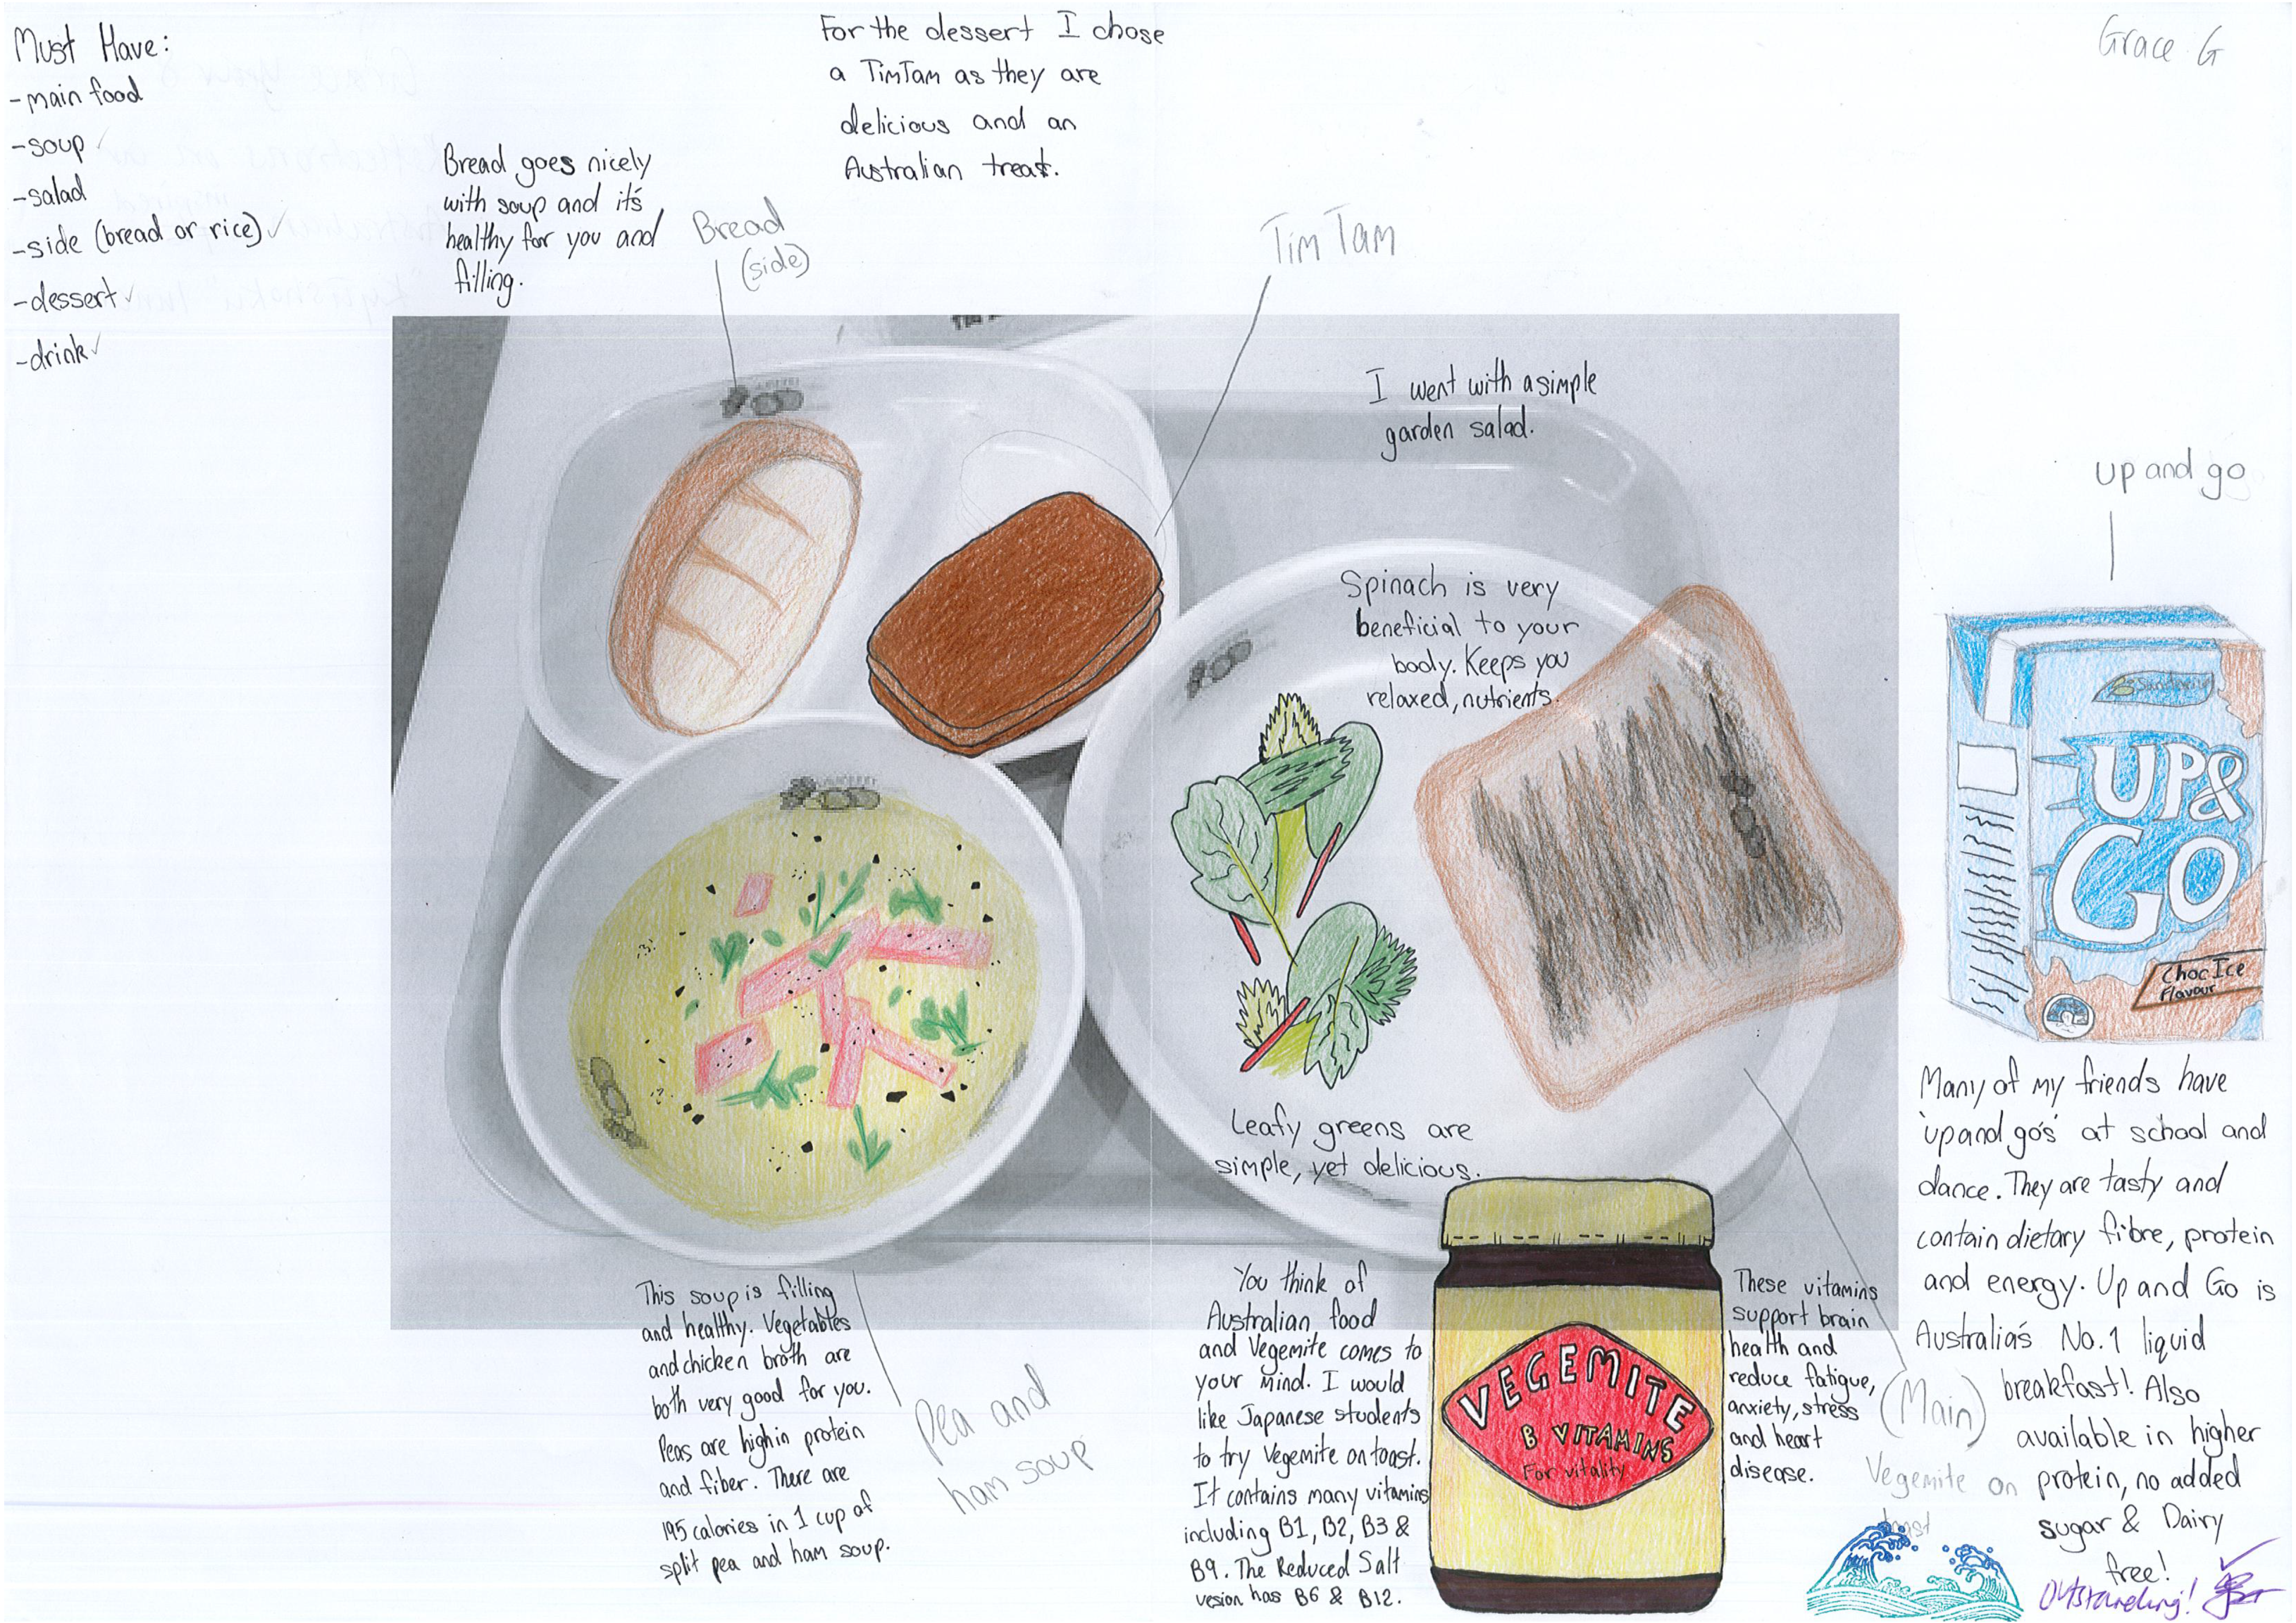 Must Have:
-main food
-soup
-salad
-side (bread or rice)
-dessert
-drink
Bread goes nicely
with soup and it's
healthy for you and
filling.
Bread
(side)
For the dessert I chose
a TimTam as they are
delicious and an
Australian treat.
Tim Tam
Grace G
I went with a simple
garden salad.
Spinach is very
beneficial to your
body. Keeps you
relaxed, nutrients.
Leafy greens are
simple, yet delicious.
up and go
UP&
GO
Choc Ice
Flavour
Many of my friends have
'up and go's' at school and
dance. They are tasty and
contain dietary fibre, protein
and energy. Up and Go is
Australia's No.1 liquid
breakfast! Also
available in higher
protein, no added
sugar & Dairy
free!
This soup is filling
and healthy. Vegetables
and chicken broth are
both very good for you.
Peas are high in protein
and fiber. There are
195 calories in 1 cup of
split pea and ham soup.
Pea and
ham soup
You think of
Australian food
and Vegemite comes to
your mind. I would
like Japanese students
to try Vegemite on toast.
It contains many vitamins
including B1, B2, B3 &
B9. The Reduced Salt
vesion has B6 & B12.
VEGEMITE
B VITAMINS
For vitality
These vitamins
support brain
health and
reduce fatigue,
anxiety, stress
and heart
disease.
(Main)
Vegemite on
toast
Outstanding!